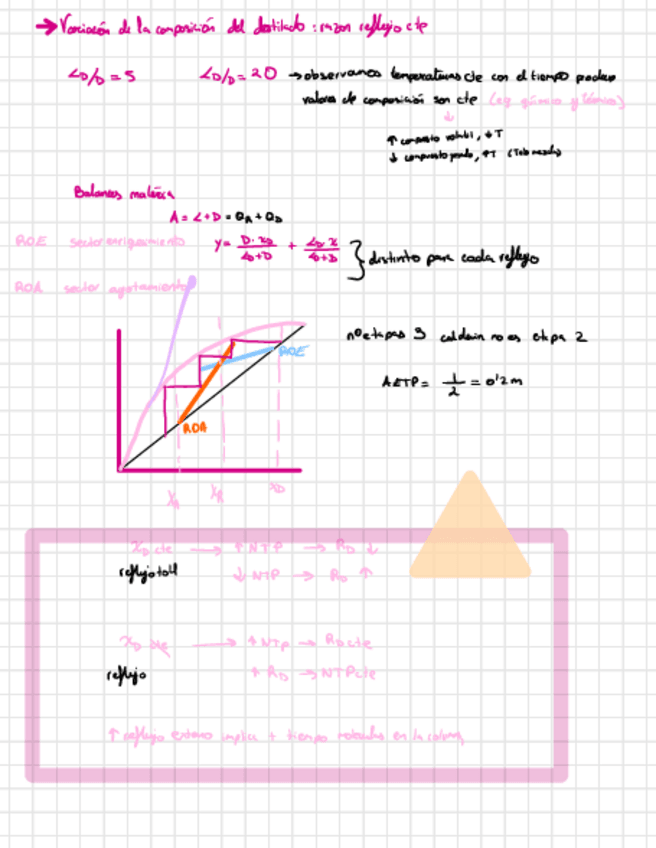 → Variación de la composición del destilado : razon reflujo cte
LD/D = 5 LD/D = 20 → observamos temperaturas cte con el tiempo produce
valores de composición son cte (eq químico y térmico)
↓
↑ compuesto volatil, ↓T
↓ compuesto pesado, ↑T
Balances materia
A = L+D = QA + QD
ROE sector enriquecimiento y = D·xD / LD+D + LD x / LD+D } distinto para cada reflujo
ROA sector agotamiento
nº etapas 3 calderin no es etapa 2
ROE
AETP = 1/2 = 0'2 m
ROA
XA XR XD
XD cte → ↑ NTP → RD ↓
reflujo total ↓ NTP → RD ↑
XD → ↑ NTP → RD cte
reflujo ↑ RD → NTP cte
↑ reflujo externo implica + tiempo en la columna